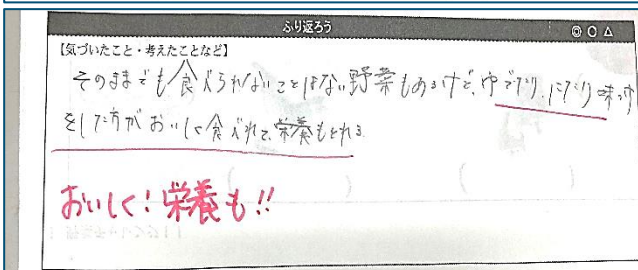 ふり返ろう ◎ ○ △
【気づいたこと・考えたことなど】
そのままでも食べられないことはない野菜もあるけど、ゆでたり、にたり味つけ
をした方がおいしく食べれて、栄養もとれる
おいしく!栄養も!!